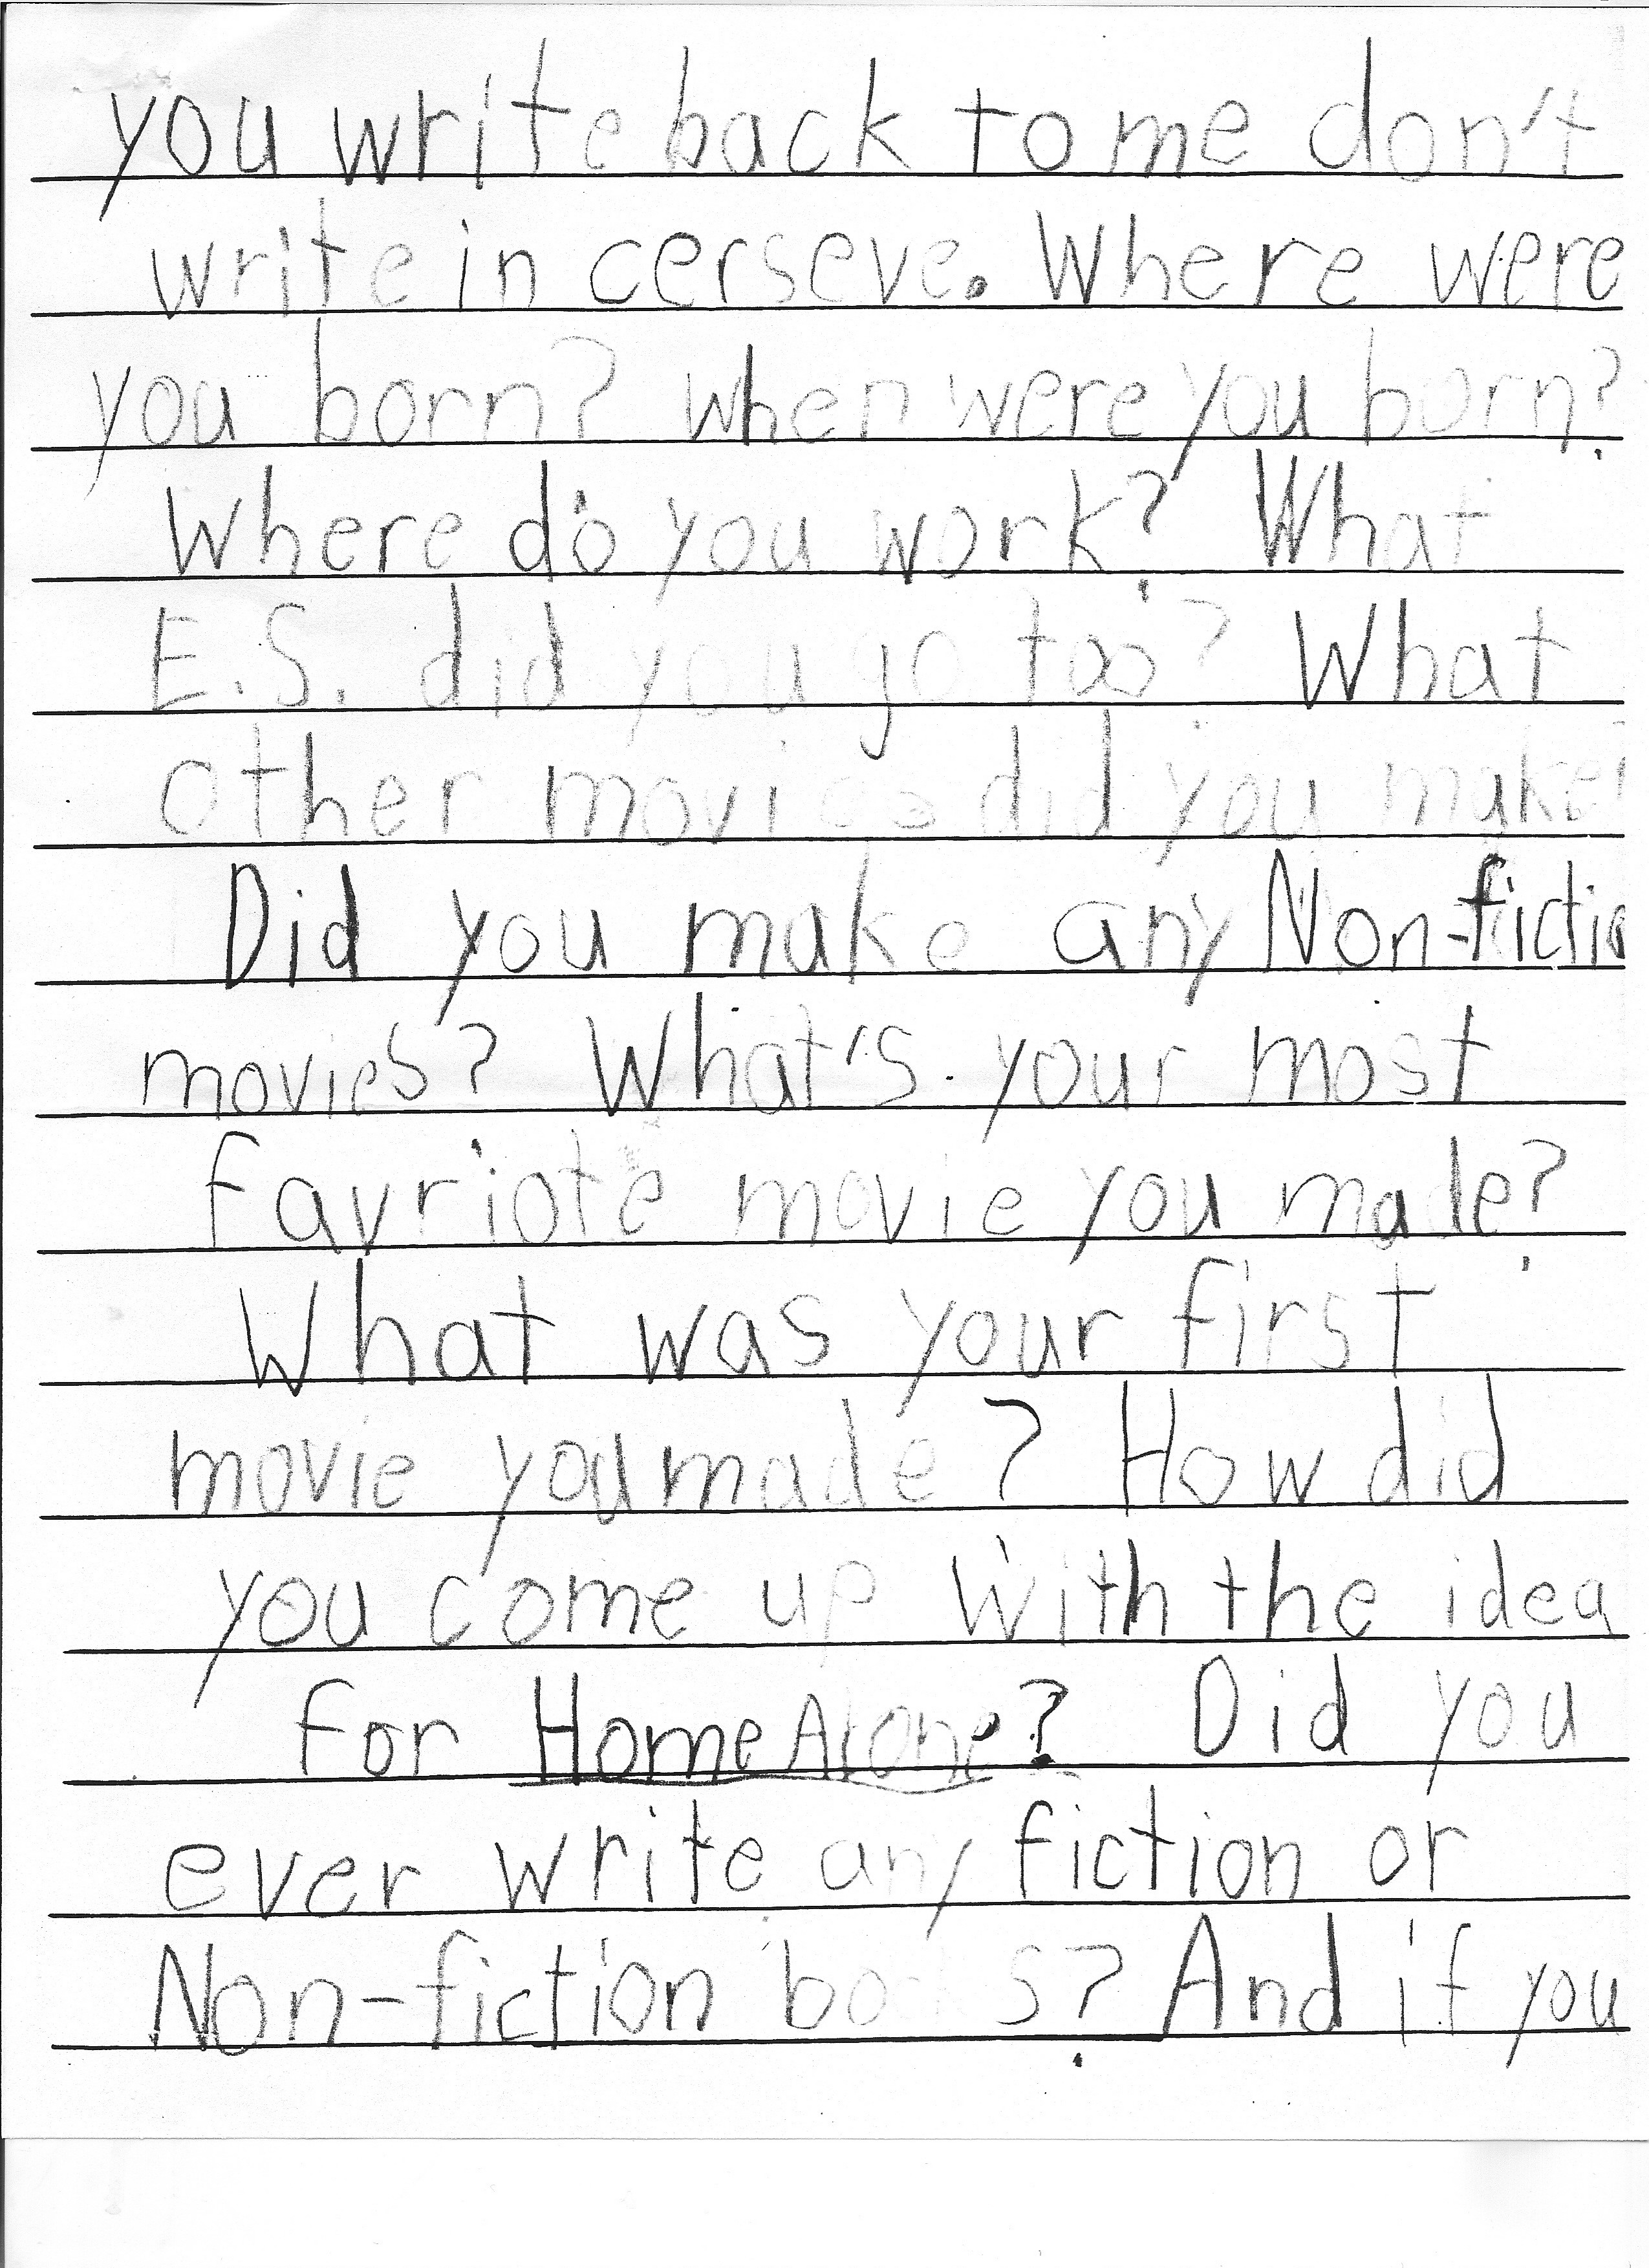 you write back to me don't
write in cerseve. Where were
you born? when were you born?
Where do you work? What
E.S. did you go too? What
other movies did you make
Did you make any Non-fictio
movies? What's your most
favriote movie you made?
What was your first
movie you made? How did
you come up with the idea
for Home Alone? Did you
ever write any fiction or
Non-fiction bo s? And if you